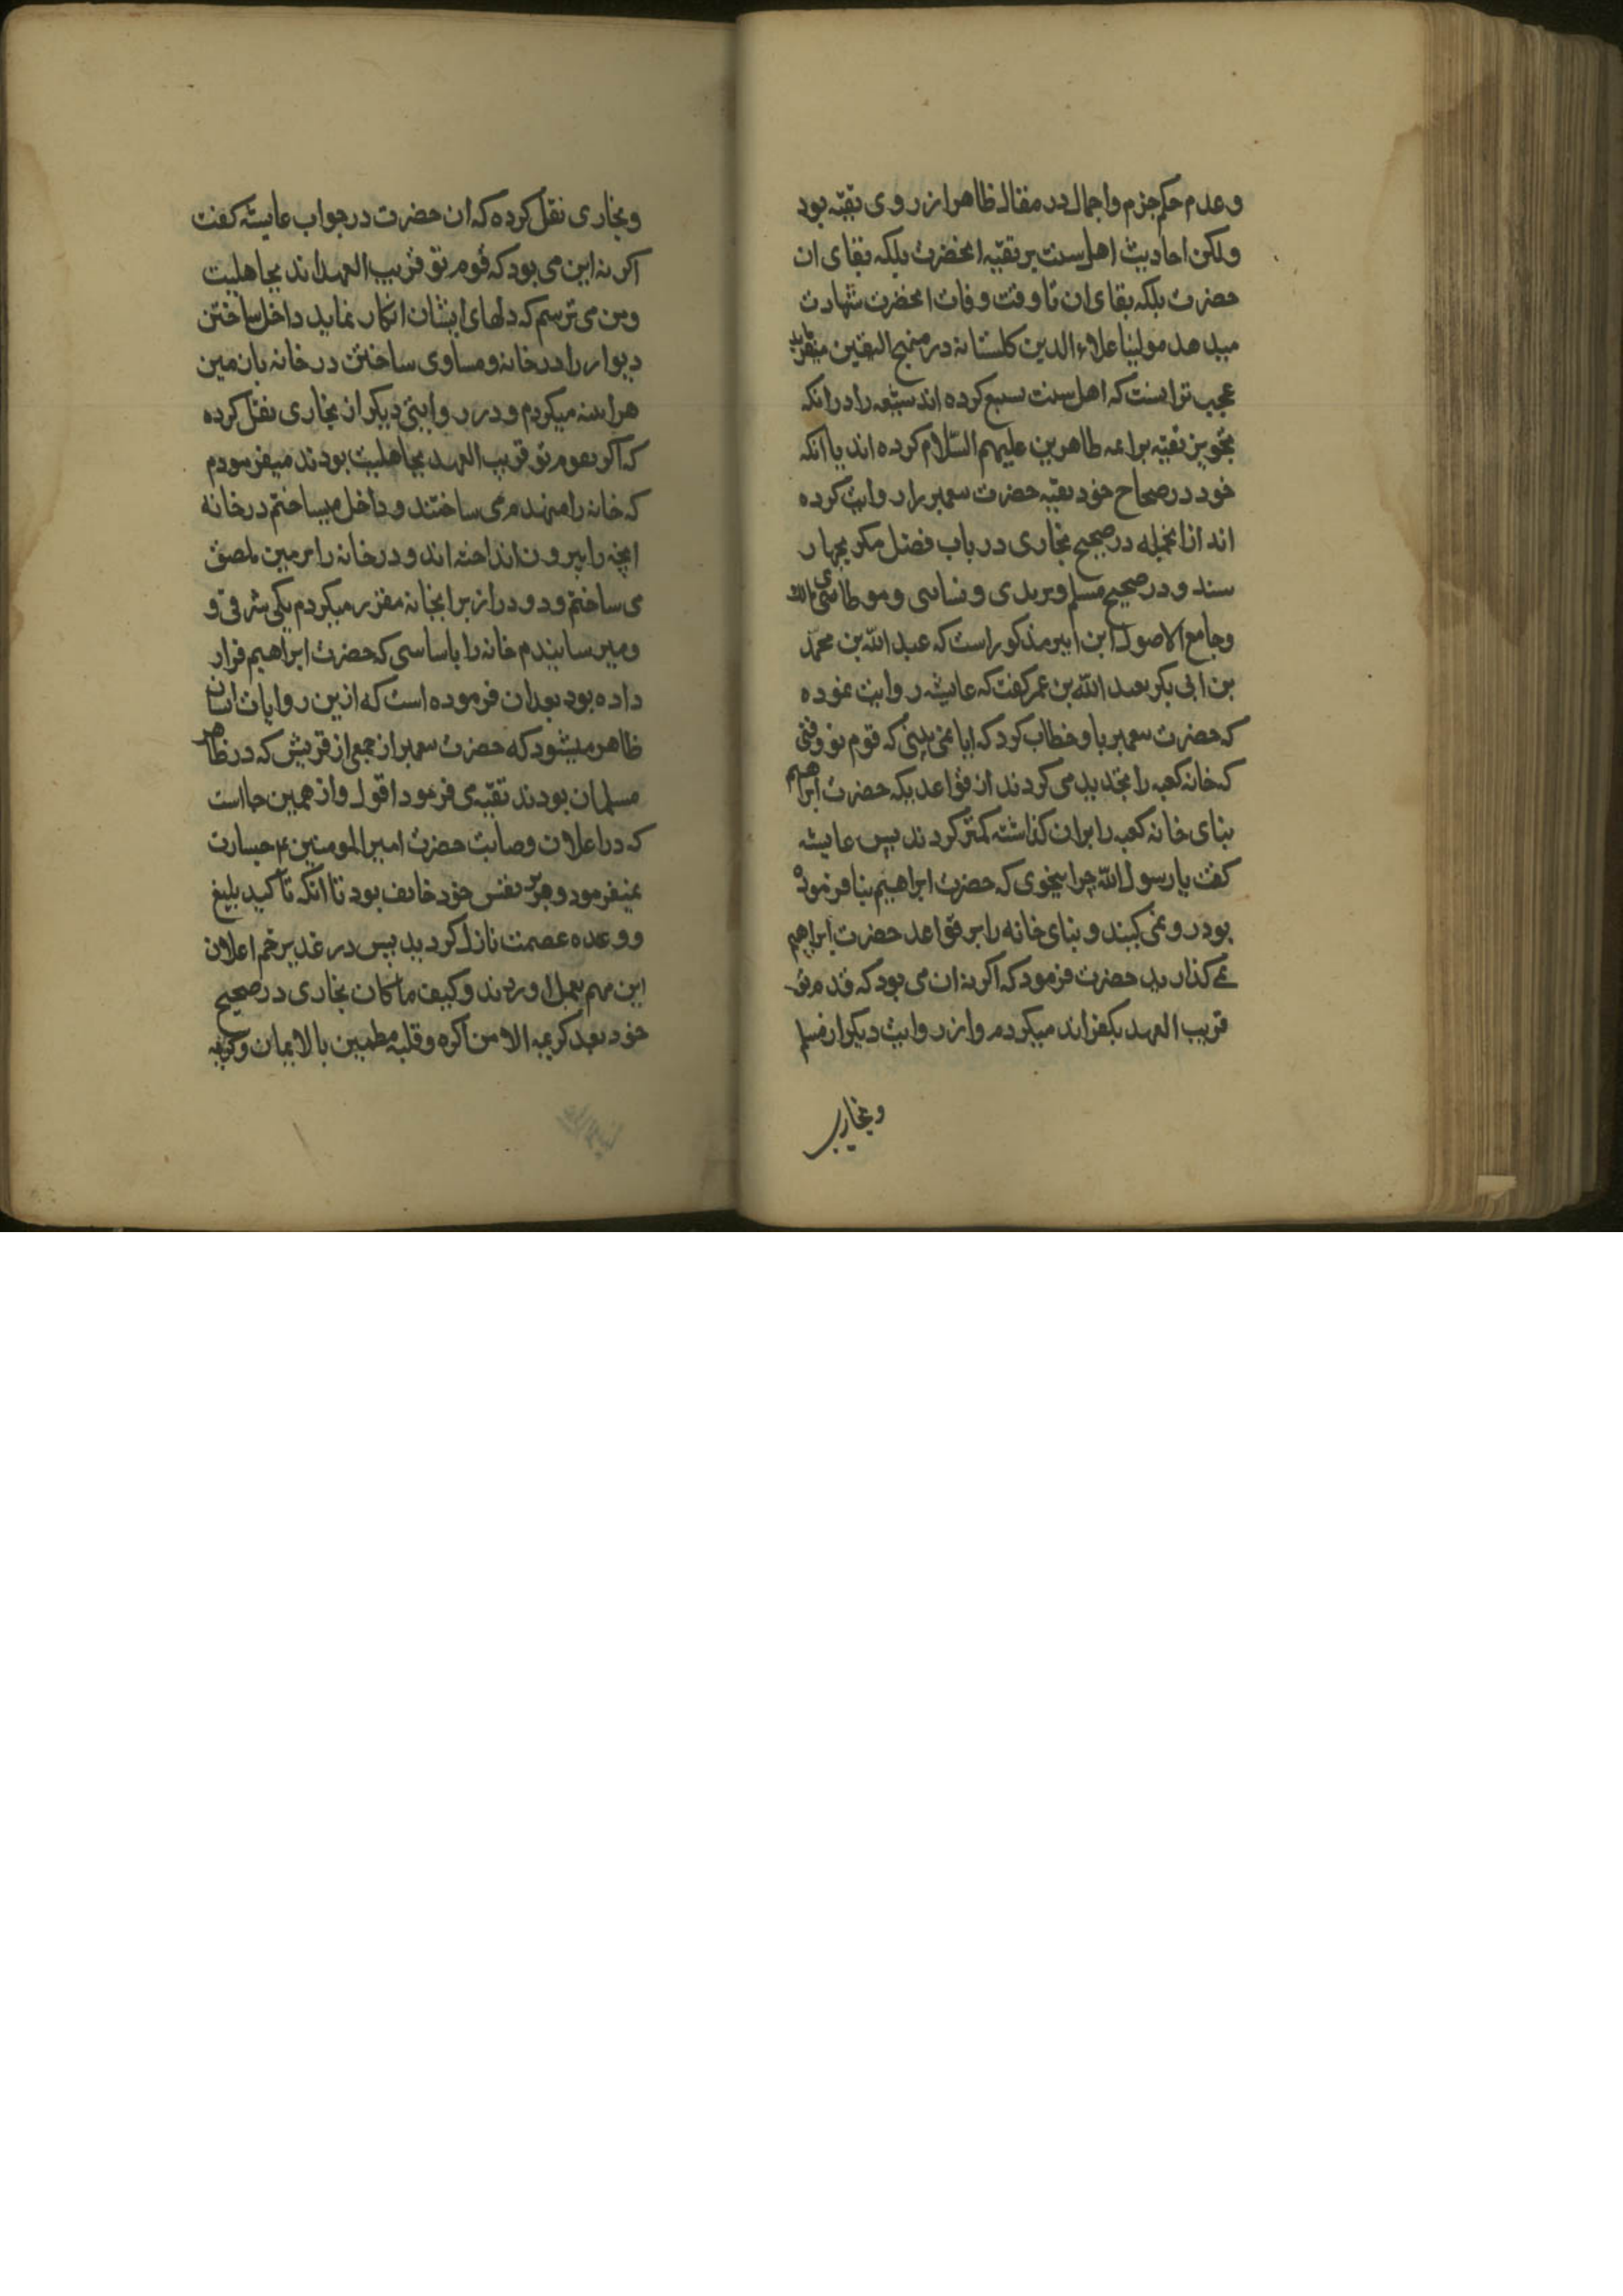 وعدم حکم جزم واجمال در مقال ظاهرا از روی تقیّه بود
ولکن احادیث اهل سنت بر تقیّه انحضرت بلکه بقای ان
حضرت بلکه بقای ان تا وقت وفات انحضرت شهادت
میدهد مولینا علاء الدین کلستانه در منهج الیقین میفرماید
عجب تر انست که اهل سنت سیع کرده اند شیعه را در انکه
تجویز تقیّه بر ائمه طاهرین علیهم السّلام کرده اند با انکه
خود در صحاح خود تقیّه حضرت پیغمبر را روایت کرده
اند از انجمله در صحیح بخاری در باب فضل مکه بچهار
سند و در صحیح مسلم و ترمدی و نسائی و موطای مالک
وجامع الاصول ابن اثیر مذکور است که عبد الله بن محمّد
بن ابی بکر بعبد الله بن عمر کفت که عایشه روایت نموده
که حضرت پیغمبر باو خطاب کرد که ایا نمی بینی که قوم تو وقتی
که خانه کعبه را تجدید می کردند از قواعدیکه حضرت ابراهیم
بنای خانه کعبه را بران کذاشته کمتر کردند پس عایشه
کفت یا رسول الله چرا بنحوی که حضرت ابراهیم بنا فرموده
بود رو نمی کنند و بنای خانه را بر قواعد حضرت ابراهیم
نمی کذارید حضرت فرمود که اکر نه ان می بود که قدم تو
قریب العهد بکفر اند میکردم واز روایت دیکر از مسلم
وبخاری
وبخاری نقل کرده که ان حضرت در جواب عایشه کفت
اکر نه این می بود که قوم تو قریب العهد اند بجاهلیت
ومن می ترسم که دلهای ایشان انکار نماید داخل ساختن
دیوار را در خانه ومساوی ساختن در خانه بان مین
هراینه میکردم و در روایتی دیکر از بخاری نقل کرده
که اکر نه قوم تو قریب العهد بجاهلیت بودند میفرمودم
که خانه را منهدم می ساختند و داخل میساختم در خانه
انچه را بیرون انداخته اند و در خانه را بر مین ملصق
می ساختم و دو در از برا بخانه مقرر میکردم یکی شرقی و
ومیرسانیدم خانه را باساسی که حضرت ابراهیم قرار
داده بود بعد ان فرموده است که از این روایات اسان
ظاهر میشود که حضرت پیغمبر از جمعی از قریش که در ظاهر
مسلمان بودند تقیّه ی فرمود اقول واز همین جا است
که در اعلان وصایت حضرت امیر المومنین ع جسارت
نمیفرمود و بر نفس خود خایف بود تا انکه تاکید بلیغ
و وعده عصمت نازل کردید پس در غدیر خم اعلان
این مهم بعمل اوردند وکیف ماکان بخاری در صحیح
خود بعد کریمه الا من اکره وقلبه مطمئن بالایمان وکریمه